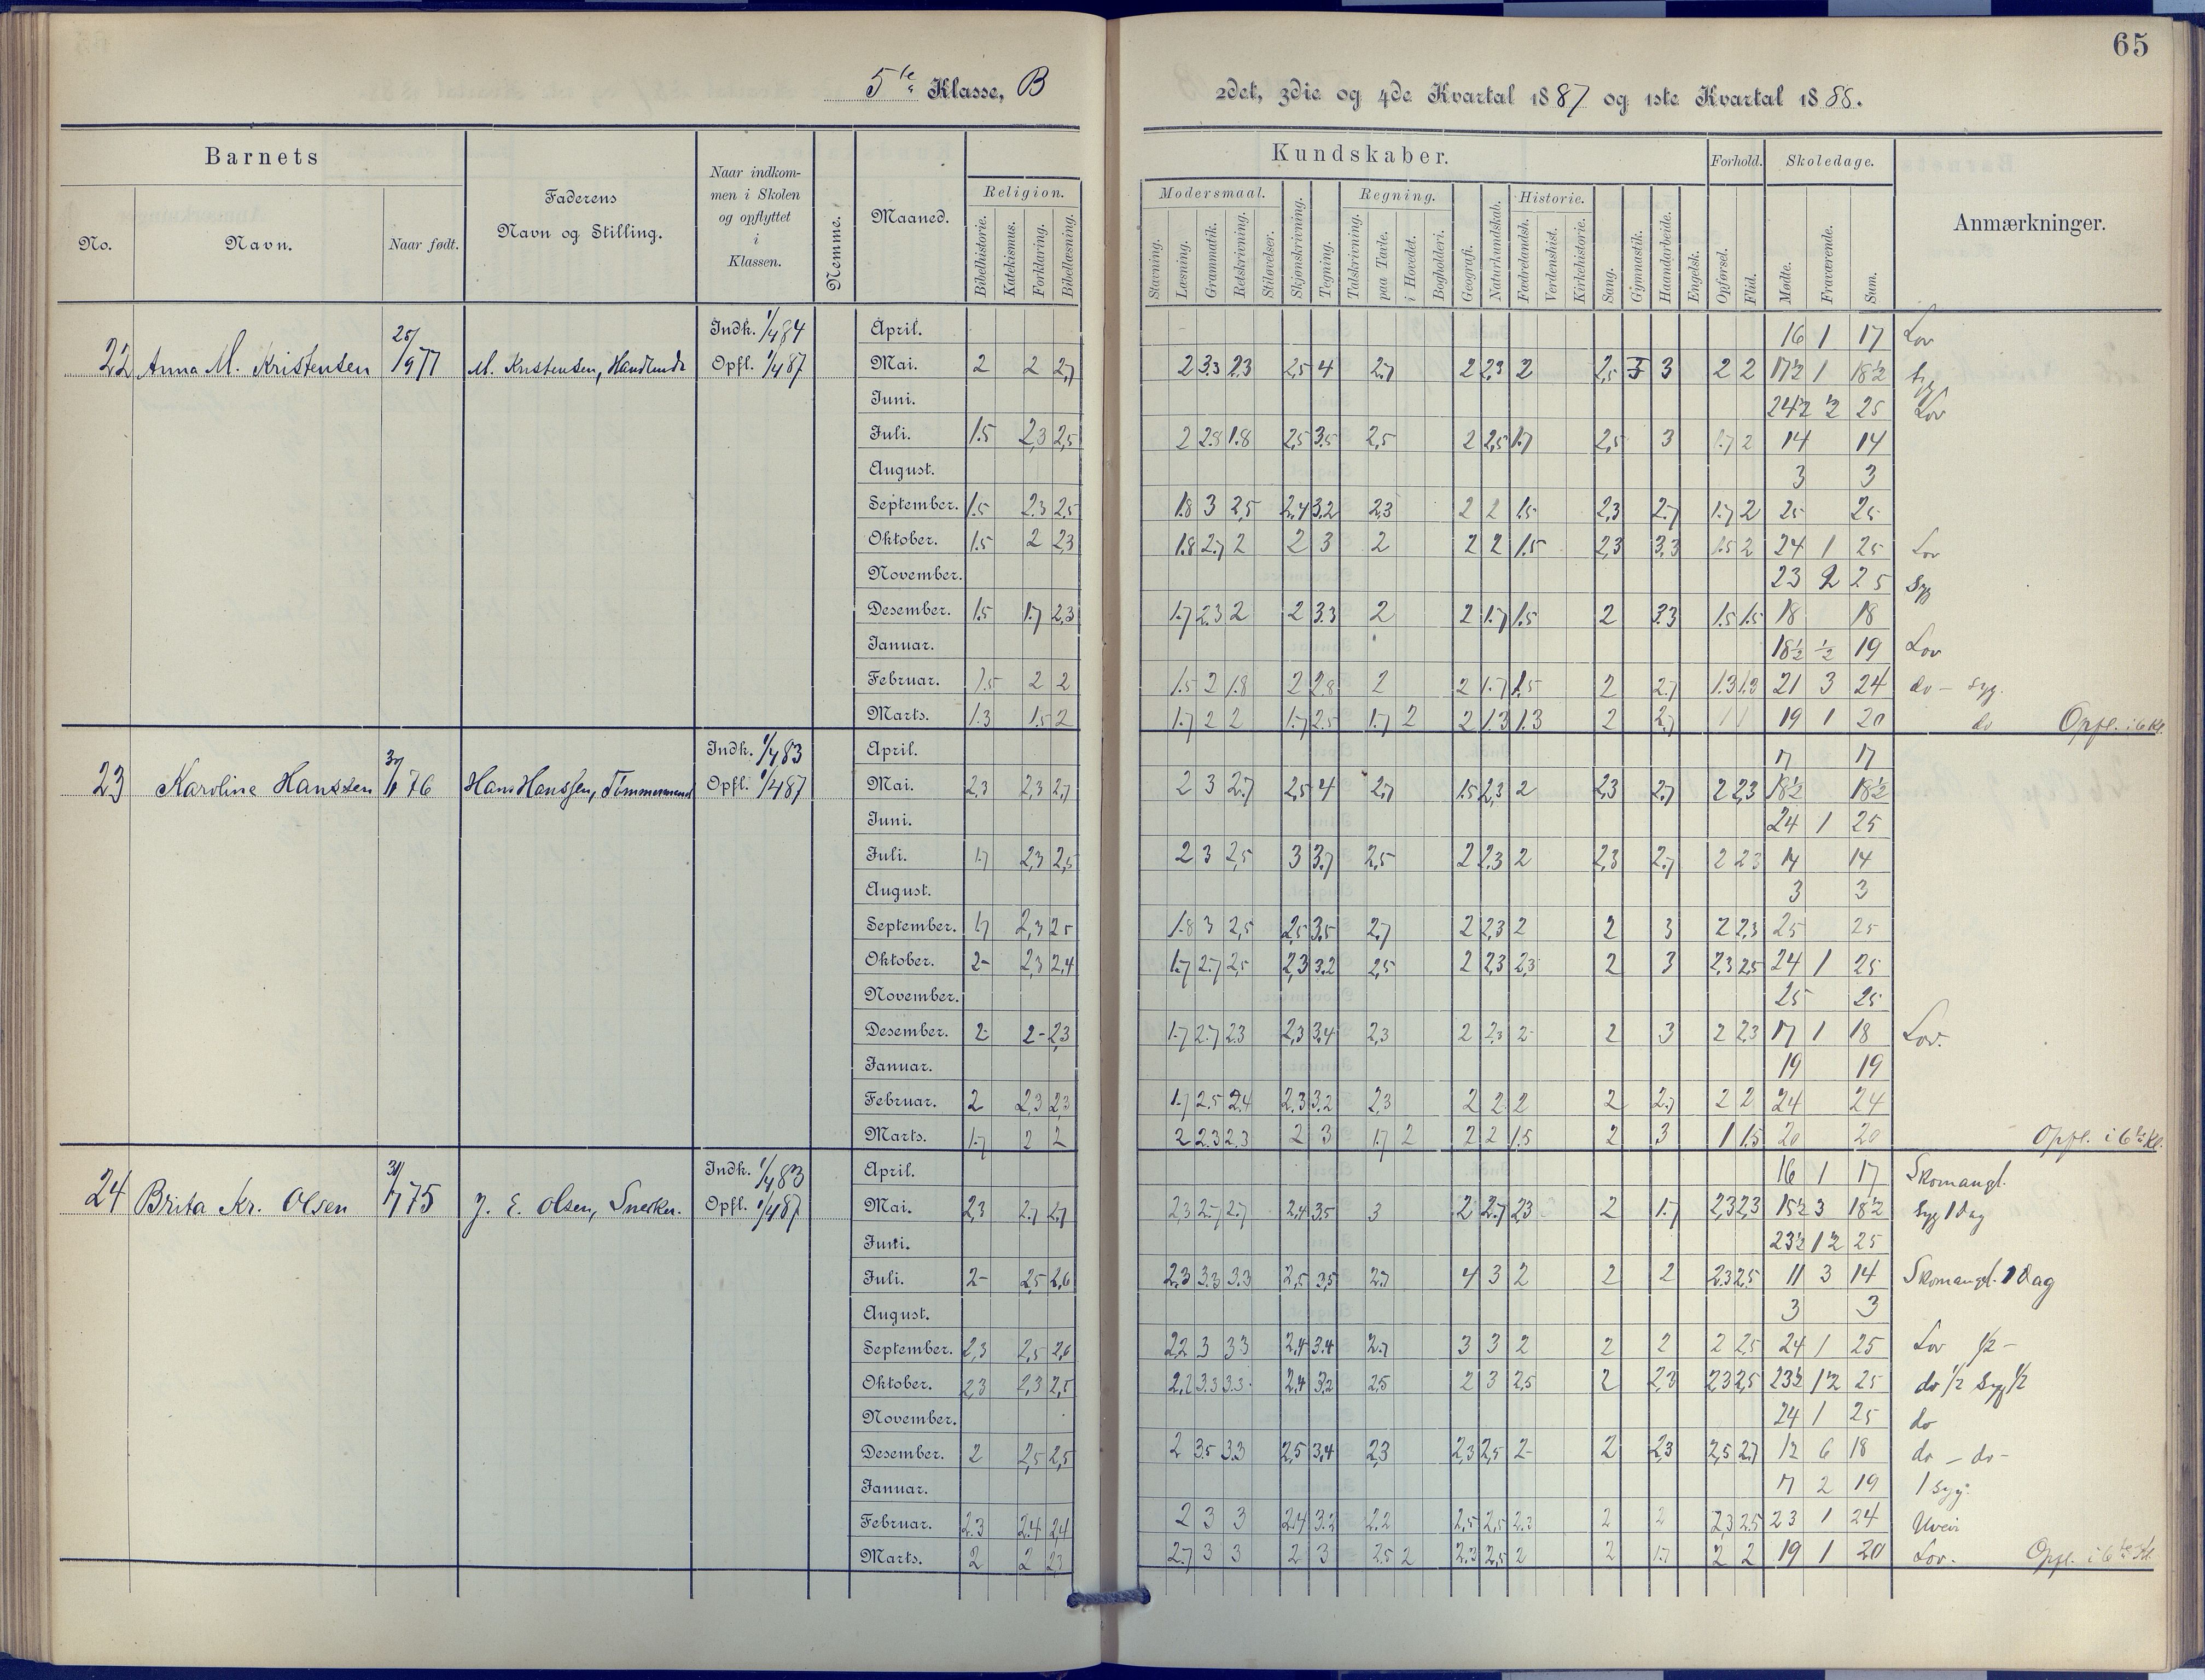 65
5te Klasse, B
2det, 3die og 4de Kvartal 1887 og 1ste Kvartal 1888.
Barnets
Faderens Navn og Stilling.
Naar indkommen i Skolen og opflyttet i Klassen.
Nemme.
Maaned.
Kundskaber.
Forhold.
Skoledage.
Anmærkninger.
No.
Navn.
Naar født.
Religion.
Modersmaal.
Regning.
Historie.
Bibelhistorie. Katekismus. Forklaring. Bibellæsning.
Stavning. Læsning. Grammatik. Retskrivning. Stiløvelser. Skjønskrivning. Tegning. Talskrivning. paa Tavle. i Hovedet. Bogholderi. Geografi. Naturkundskab. Fædrelandsh. Verdenshist. Kirkehistorie. Sang. Gymnastik. Haandarbeide. Engelsk. Opførsel. Flid. Mødte. Fraværende. Sum.
Indk. 1/4 84 April. 16 1 17 Lov
22 Anna M. Kristensen 25/9 77 M. Kristensen, Opfl. 1/4 87 Mai. 2 2 2,7 2 3.3 2.3 2,5 4 2.7 2 2,3 2 2,5 3 2 2 17½ 1 18½ Syg
Juni. 24½ ½ 25 Lov
Juli. 1.5 2,3 2,5 2 2.8 1.8 2,5 3,5 2,5 2 2,5 1.7 2,5 3 1.7 2 14 14
August. 3 3
September. 1.5 2.3 2.5 1.8 3 2,5 2,4 3,2 2,3 2 2 1.5 2,3 2.7 1.7 2 25 25
Oktober. 1.5 2 2,3 1.8 2.7 2 2 3 2 2 2 1.5 2,3 3,3 1.5 2 24 1 25 Lov
November. 23 2 25 Syg
Desember. 1.5 1.7 2,3 1.7 2.3 2 2 3.3 2 2 1.7 1.5 2 3.3 1.5 1.5 18 18
Januar. 18½ ½ 19 Lov
Februar. 1.5 2 2 1.5 2 1.8 2 2.8 2 2 1.7 1.5 2 2.7 1.3 1.3 21 3 24 do - syg.
Marts. 1.3 1.5 2 1.7 2 2 1.7 2.5 1.7 2 2 1.3 1.3 2 2.7 1 1 19 1 20 do Opfl. i 6 Kl.
Indk. 1/4 83 April. 17 17
23 Karoline Hanssen 76 Hans Hanssen, Tømmermand Opfl. 1/4 87 Mai. 2,3 2,3 2,7 2 3 2.7 2,5 4 2.7 1.5 2,3 2 2,3 2.7 2 2,3 18½ 18½
Juni. 24 1 25
Juli. 1.7 2,3 2,5 2 3 2,5 3 3.7 2,5 2 2.3 2 2,3 2.7 2 2.3 14 14
August. 3 3
September. 1.7 2,3 2.5 1.8 3 2,5 2,5 3,5 2.7 2 2,3 2 2 3 2 2,3 25 25
Oktober. 2- 2,3 2,4 1.7 2.7 2,5 2,3 3.2 2,5 2 2,3 2,3 2 3 2,3 2,5 24 1 25
November. 25 25
Desember. 2- 2- 2,3 1.7 2.7 2.3 2,3 3,4 2,3 2 2,3 2- 2 3 2 2,3 17 1 18 Lov.
Januar. 19 19
Februar. 2 2,3 2,3 1.7 2.5 2.4 2.3 3.2 2,3 2 2 2 2 2.7 2 2 24 24
Marts. 1.7 2 2 2 2.3 2.3 2 3 1.7 2 2 2 1.5 2 3 1 1.5 20 20 Opfl. i 6te Kl.
Indk. 1/4 83 April. 16 1 17 Skomangl.
24 Brita Kr. Olsen 75 J. E. Olsen, Snekker. Opfl. 1/4 87 Mai. 2,3 2.7 2.7 2.3 2.7 2.7 2.4 3.5 3 2 2.7 2.3 2 1.7 2,3 2,3 15½ 3 18½ Syg 1 dag
Juni. 23½ 1½ 25
Juli. 2- 2,5 2,6 2.3 3.3 3.3 2,5 3,5 2.7 4 3 2 2 2 2.3 2.5 11 3 14 Skomangl. 1 dag
August. 3 3
September. 2,3 2,5 2,6 2.2 3 3.3 2,4 3.4 2.7 3 3 2 2 2 2 2,5 24 1 25 Lov ½ -
Oktober. 2,3 2,3 2,5 2.2 3.3 3.3 2,4 3,2 2,5 2 3 2,5 2 2,3 2,3 2,5 23½ 1½ 25 do ½ Syg ½
November. 24 1 25 do
Desember. 2 2,5 2,5 2 3.5 3.3 2,5 3,4 2,3 2,3 2,5 2- 2 2,3 2,5 2.7 12 6 18 do - do -
Januar. 17 2 19 1 syg.
Februar. 2.3 2.4 2.4 2 3 3 2.4 3.2 2.2 2,5 2,5 2.3 2 2 2,3 2.5 23 1 24 Uveir
Marts. 2 2 2,3 2.7 3 3 2 3 2.5 2 2.3 2,5 2 2 1.7 2 2 19 1 20 Lov. Opfl. i 6te Kl.